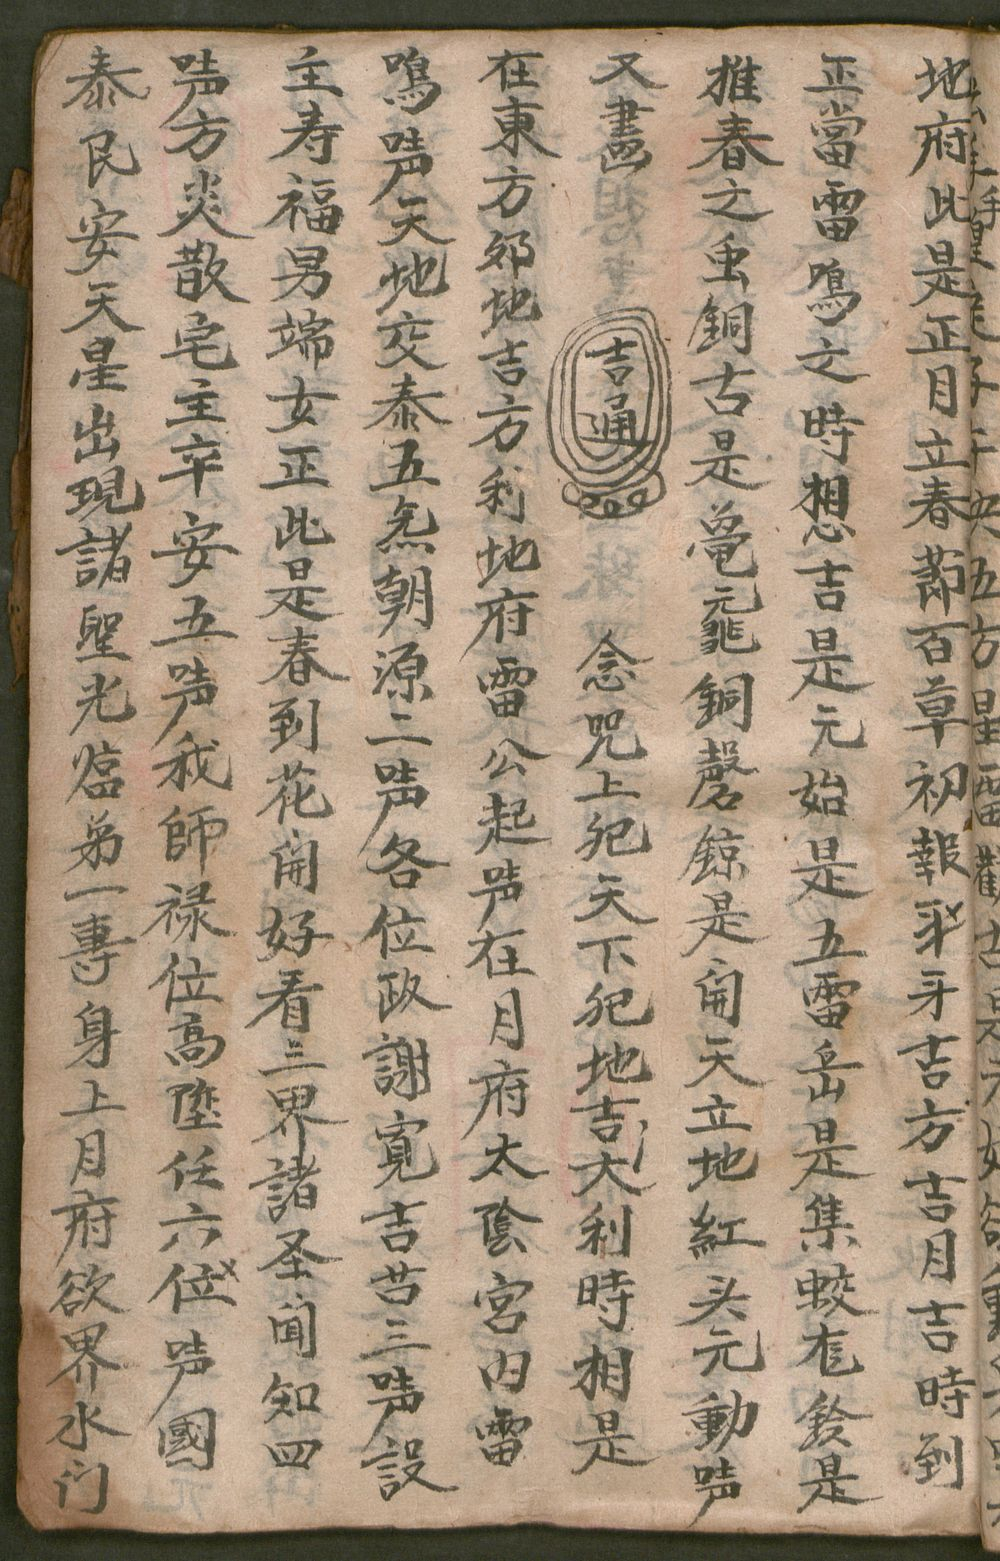 地府此是正月立春莭百草初報牙牙吉方吉月吉時到
正當雷鳴之時想吉是元始是五雷岳是集蛟 鈴是
推春之虫銅古是 黿 銅磬 是開天立地紅头元動声
又畵 吉通 念咒上犯天下犯地吉大利時相是
在東方邜地吉方利地府雷公起声在月府太陰宮内雷
鳴声天地交泰五炁朝源二声各位政謝寛吉苔三声設
主寿福男端女正此是春到花開好看三界諸圣聞知四
声方炎散宅主平安五声我師禄位高陞任六位声國
泰民安天星出現諸聖光 弟一專身上月府欲界水门